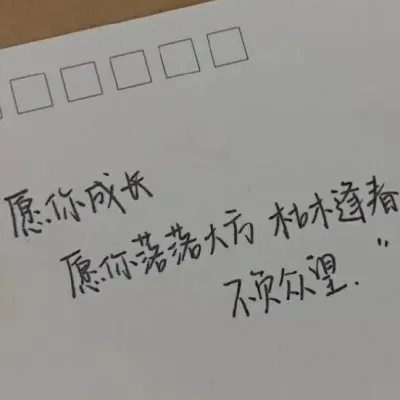 愿你成长
愿你落落大方 枯木逢春
不负众望."